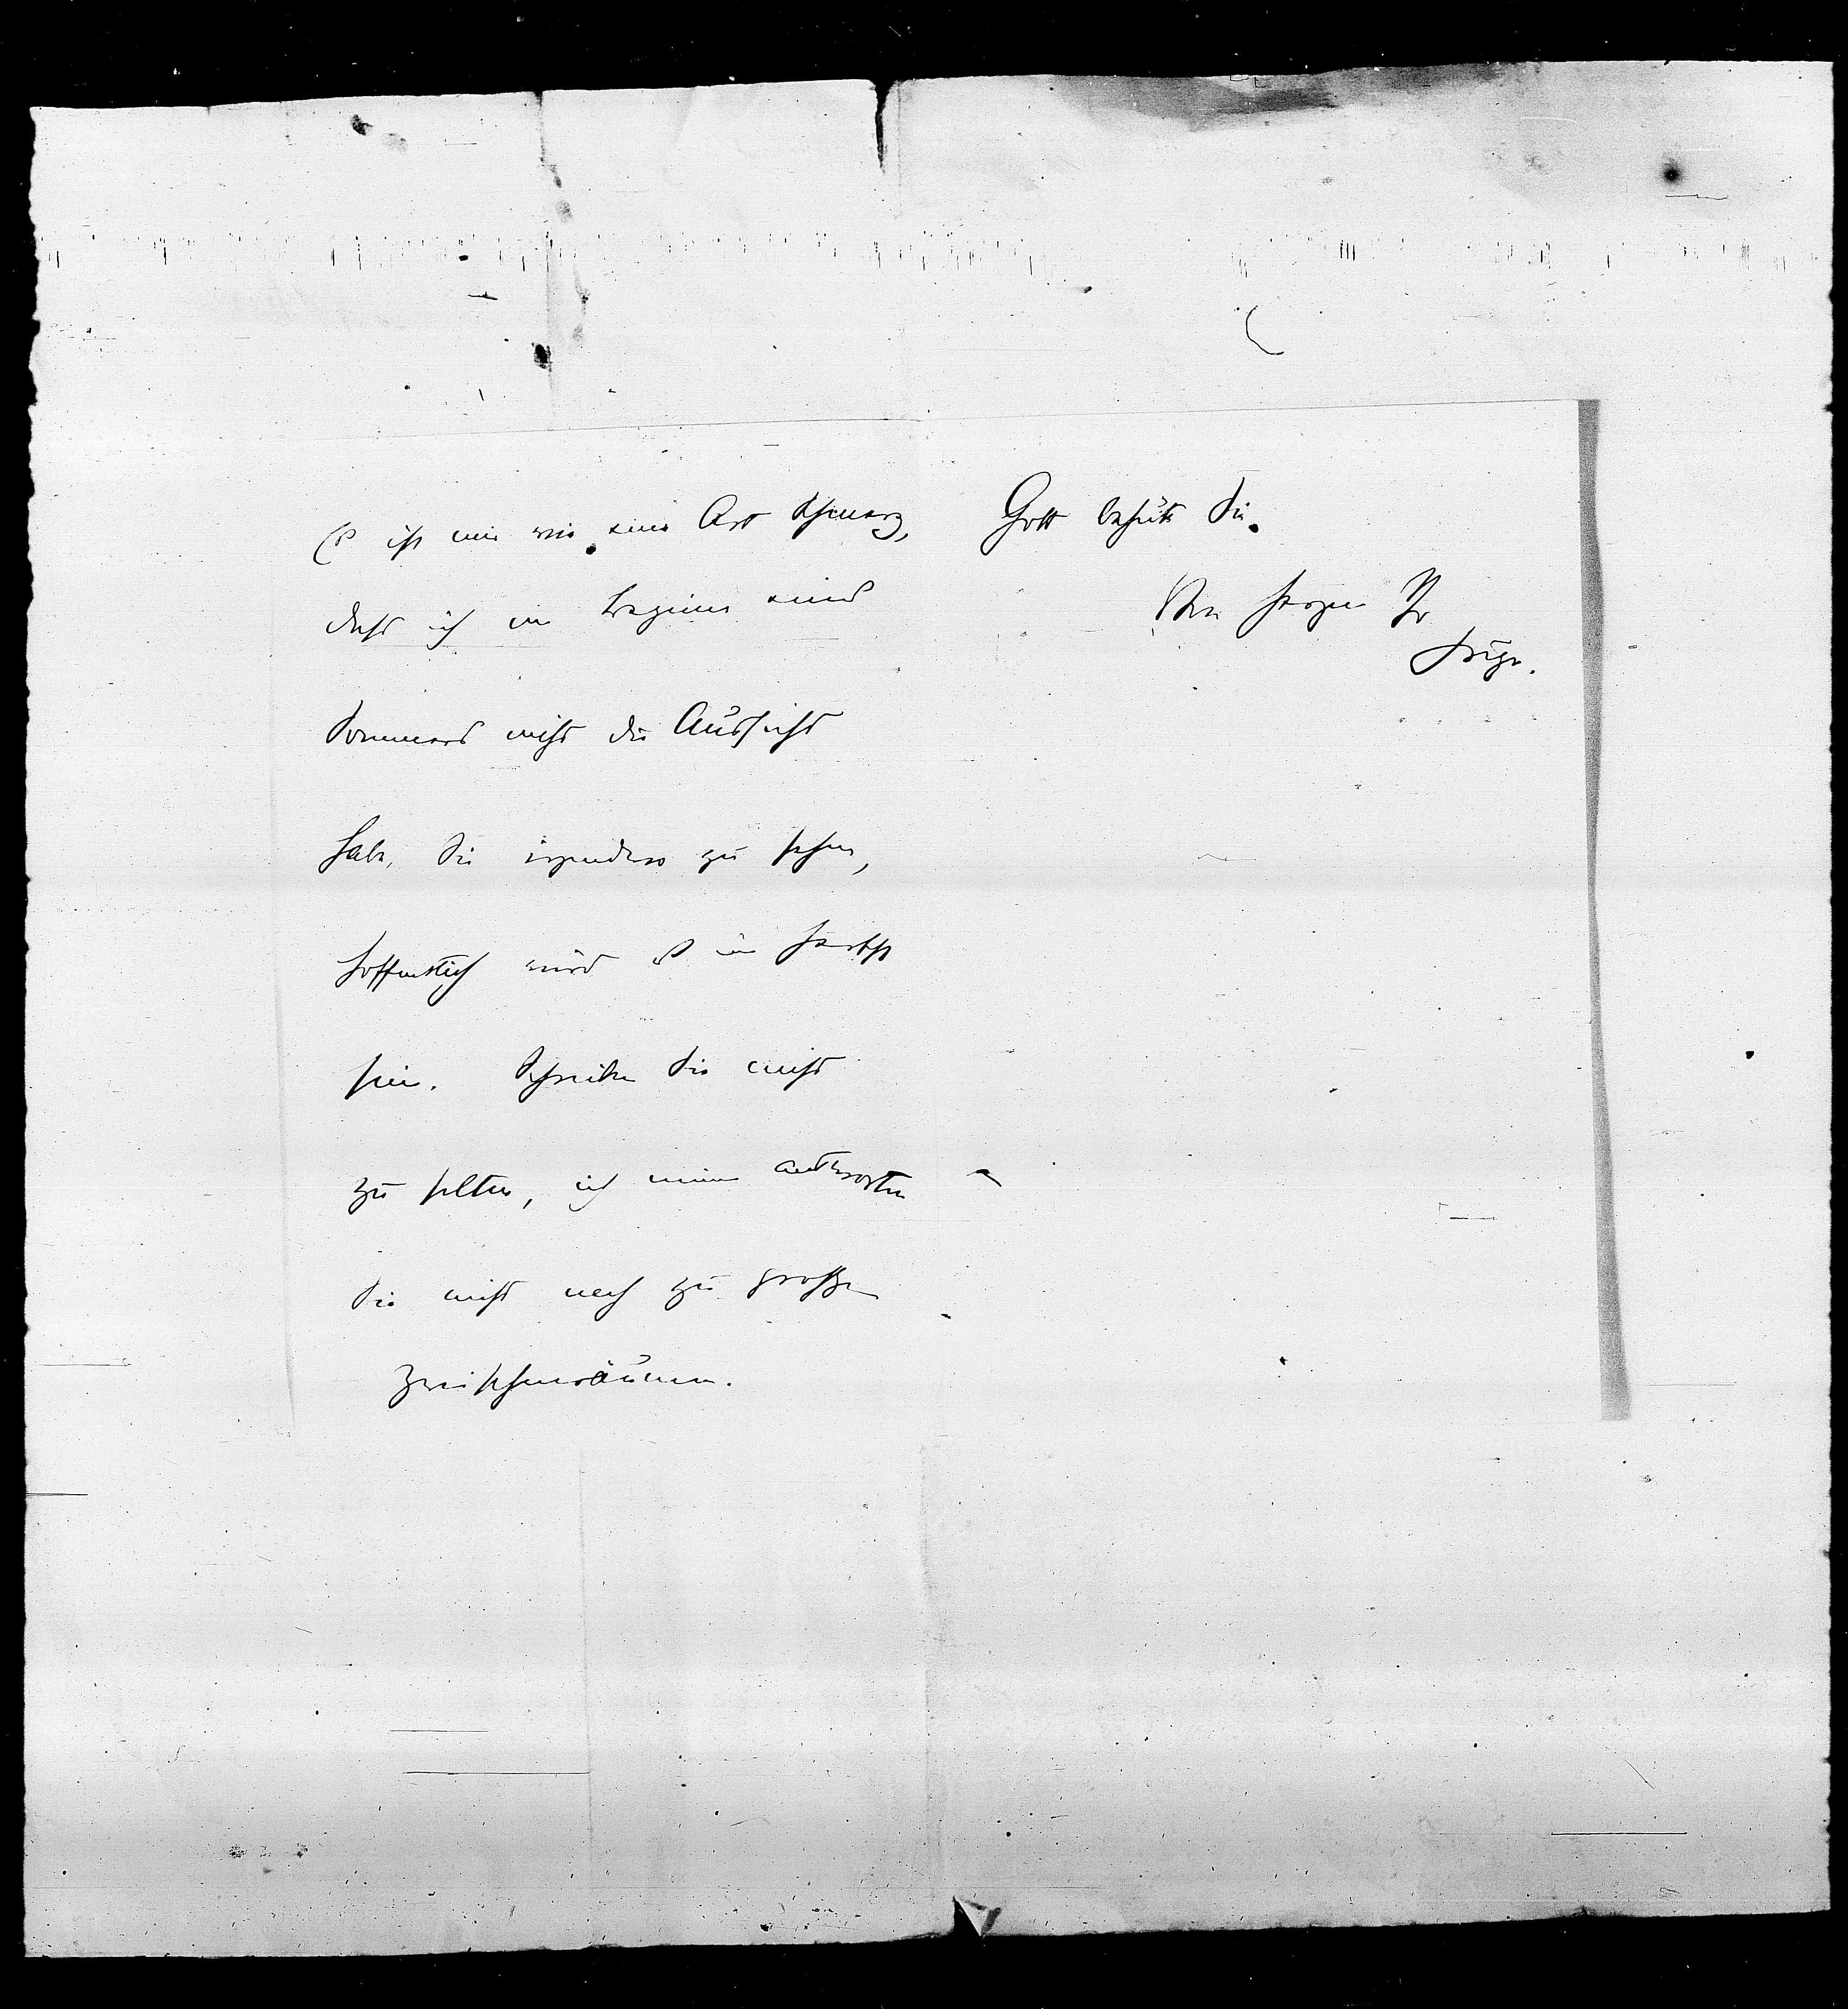 Es ist mir wie eine Art Schmerz,
dass ich im Beginne eines
Sommers nicht die Aussicht
habe, Sie irgendwo zu sehen,
hoffentlich wird es im Herbst
sein. Schreiben Sie nicht
zu selten, ich meine antworten
Sie nicht nach zu großen
Zwischenräumen.
Gott behüte Sie.
Von Herzen Ihr